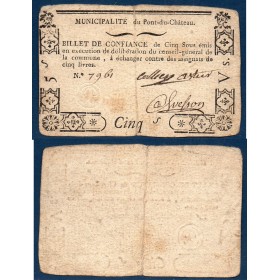 MUNICIPALITÉ du Pont-du-Château.
BILLET DE CONFIANCE de Cinq Sous émis
en exécution de délibération du conseil-général de
la commune, à échanger contre des assignats de
cinq livres.
N.° 7961
5 S
V S.
Cinq S